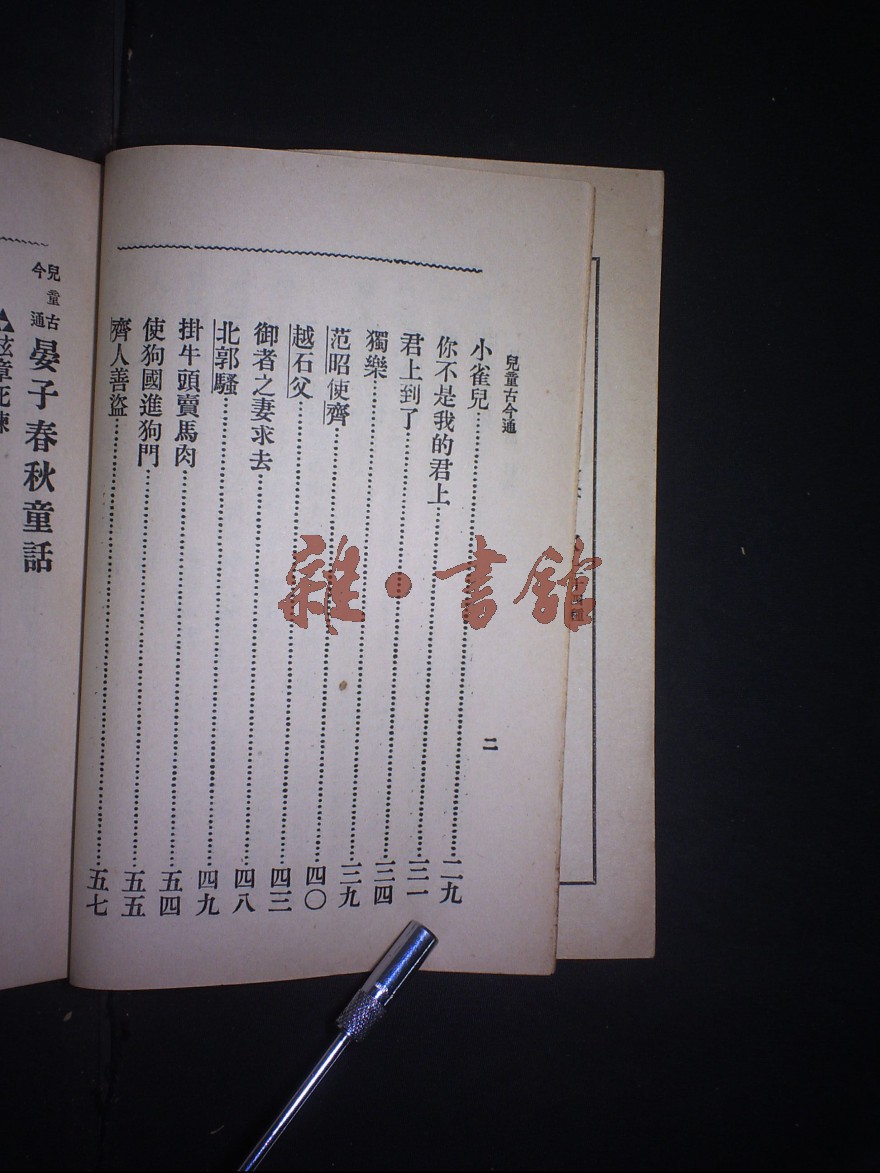 兒童古今通
小雀兒……二九
你不是我的君上……三一
君上到了……三四
獨樂……三九
范昭使齊……四〇
越石父……四三
御者之妻求去……四八
北郭騷……四九
掛牛頭賣馬肉……五四
使狗國進狗門……五五
齊人善盜……五七
二
兒童古今通 晏子春秋童話
章死
雜·書館